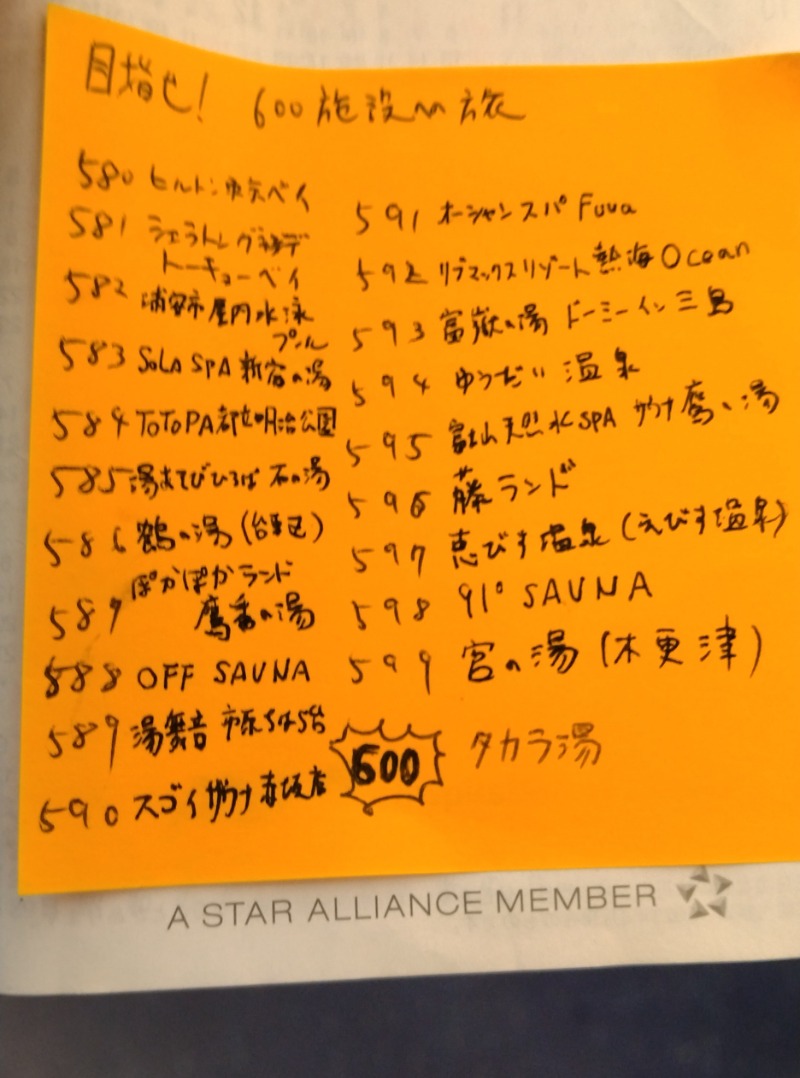 目指せ! 600施設の旅
580 ヒルトン東京ベイ
581 シェラトングランデ
トーキョーベイ
582 浦安市屋内水泳
プール
583 SOLA SPA 新宿の湯
584 TOTOPA都立明治公園
585 湯あそびひろば 石の湯
586 鶴の湯 (台東区)
587 ぽかぽかランド
鷹番の湯
588 OFF SAUNA
589 湯舞音 市原ちはら台
590 スゴイサウナ 赤坂店
591 オーシャンスパ Fuua
592 リブマックスリゾート熱海Ocean
593 富嶽の湯 ドーミーイン三島
594 ゆうだい温泉
595 富士山天然水SPA サウナ鷹の湯
596 藤ランド
597 恵びす温泉 (えびす温泉)
598 91° SAUNA
599 宮の湯 (木更津)
600 タカラ湯
A STAR ALLIANCE MEMBER